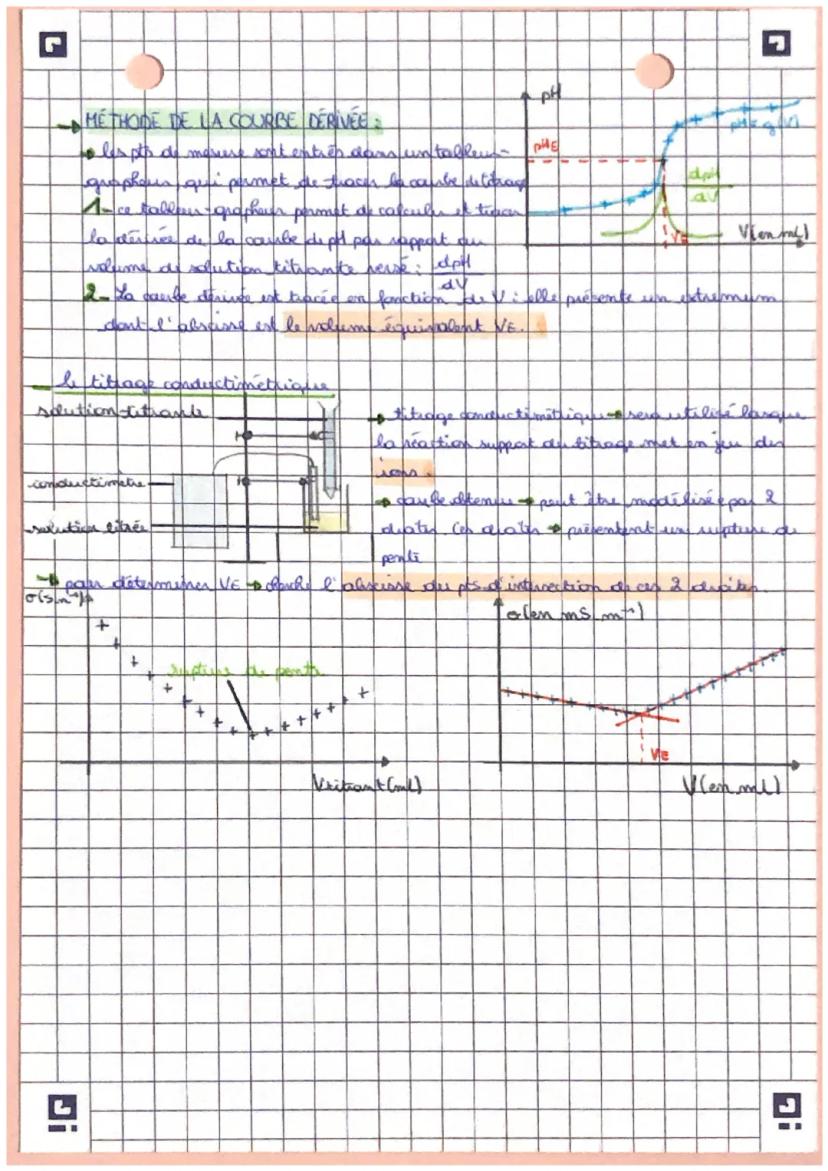 → MÉTHODE DE LA COURBE DÉRIVÉE :
→ les pts de mesure sont entrés dans un tableur-
grapheur, qui permet de tracer la courbe de titrage
1- ce tableur-grapheur permet de calculer et tracer
la dérivée de la courbe de pH par rapport au
volume de solution titrante versé : dpH/dV
2- La courbe dérivée est tracée en fonction de V : elle présente un extremum
dont l'abscisse est le volume équivalent VE.
pH
pH = g(V)
pHE
dpH
dV
VE
V(en mL)
- le titrage conductimétrique
solution titrante
conductimètre
solution titrée
→ titrage conductimétrique → sera utilisé lorsque
la réaction support du titrage met en jeu des
ions.
→ courbe obtenue → peut être modélisée par 2
droites. Ces droites → présentent un rupture de
pente
→ pour déterminer VE → cherche l'abscisse du pts d'intersection de ces 2 droites.
σ(S.m⁻¹)
rupture de pente
Vtitrant (mL)
σ(en mS.m⁻¹)
VE
V(en mL)